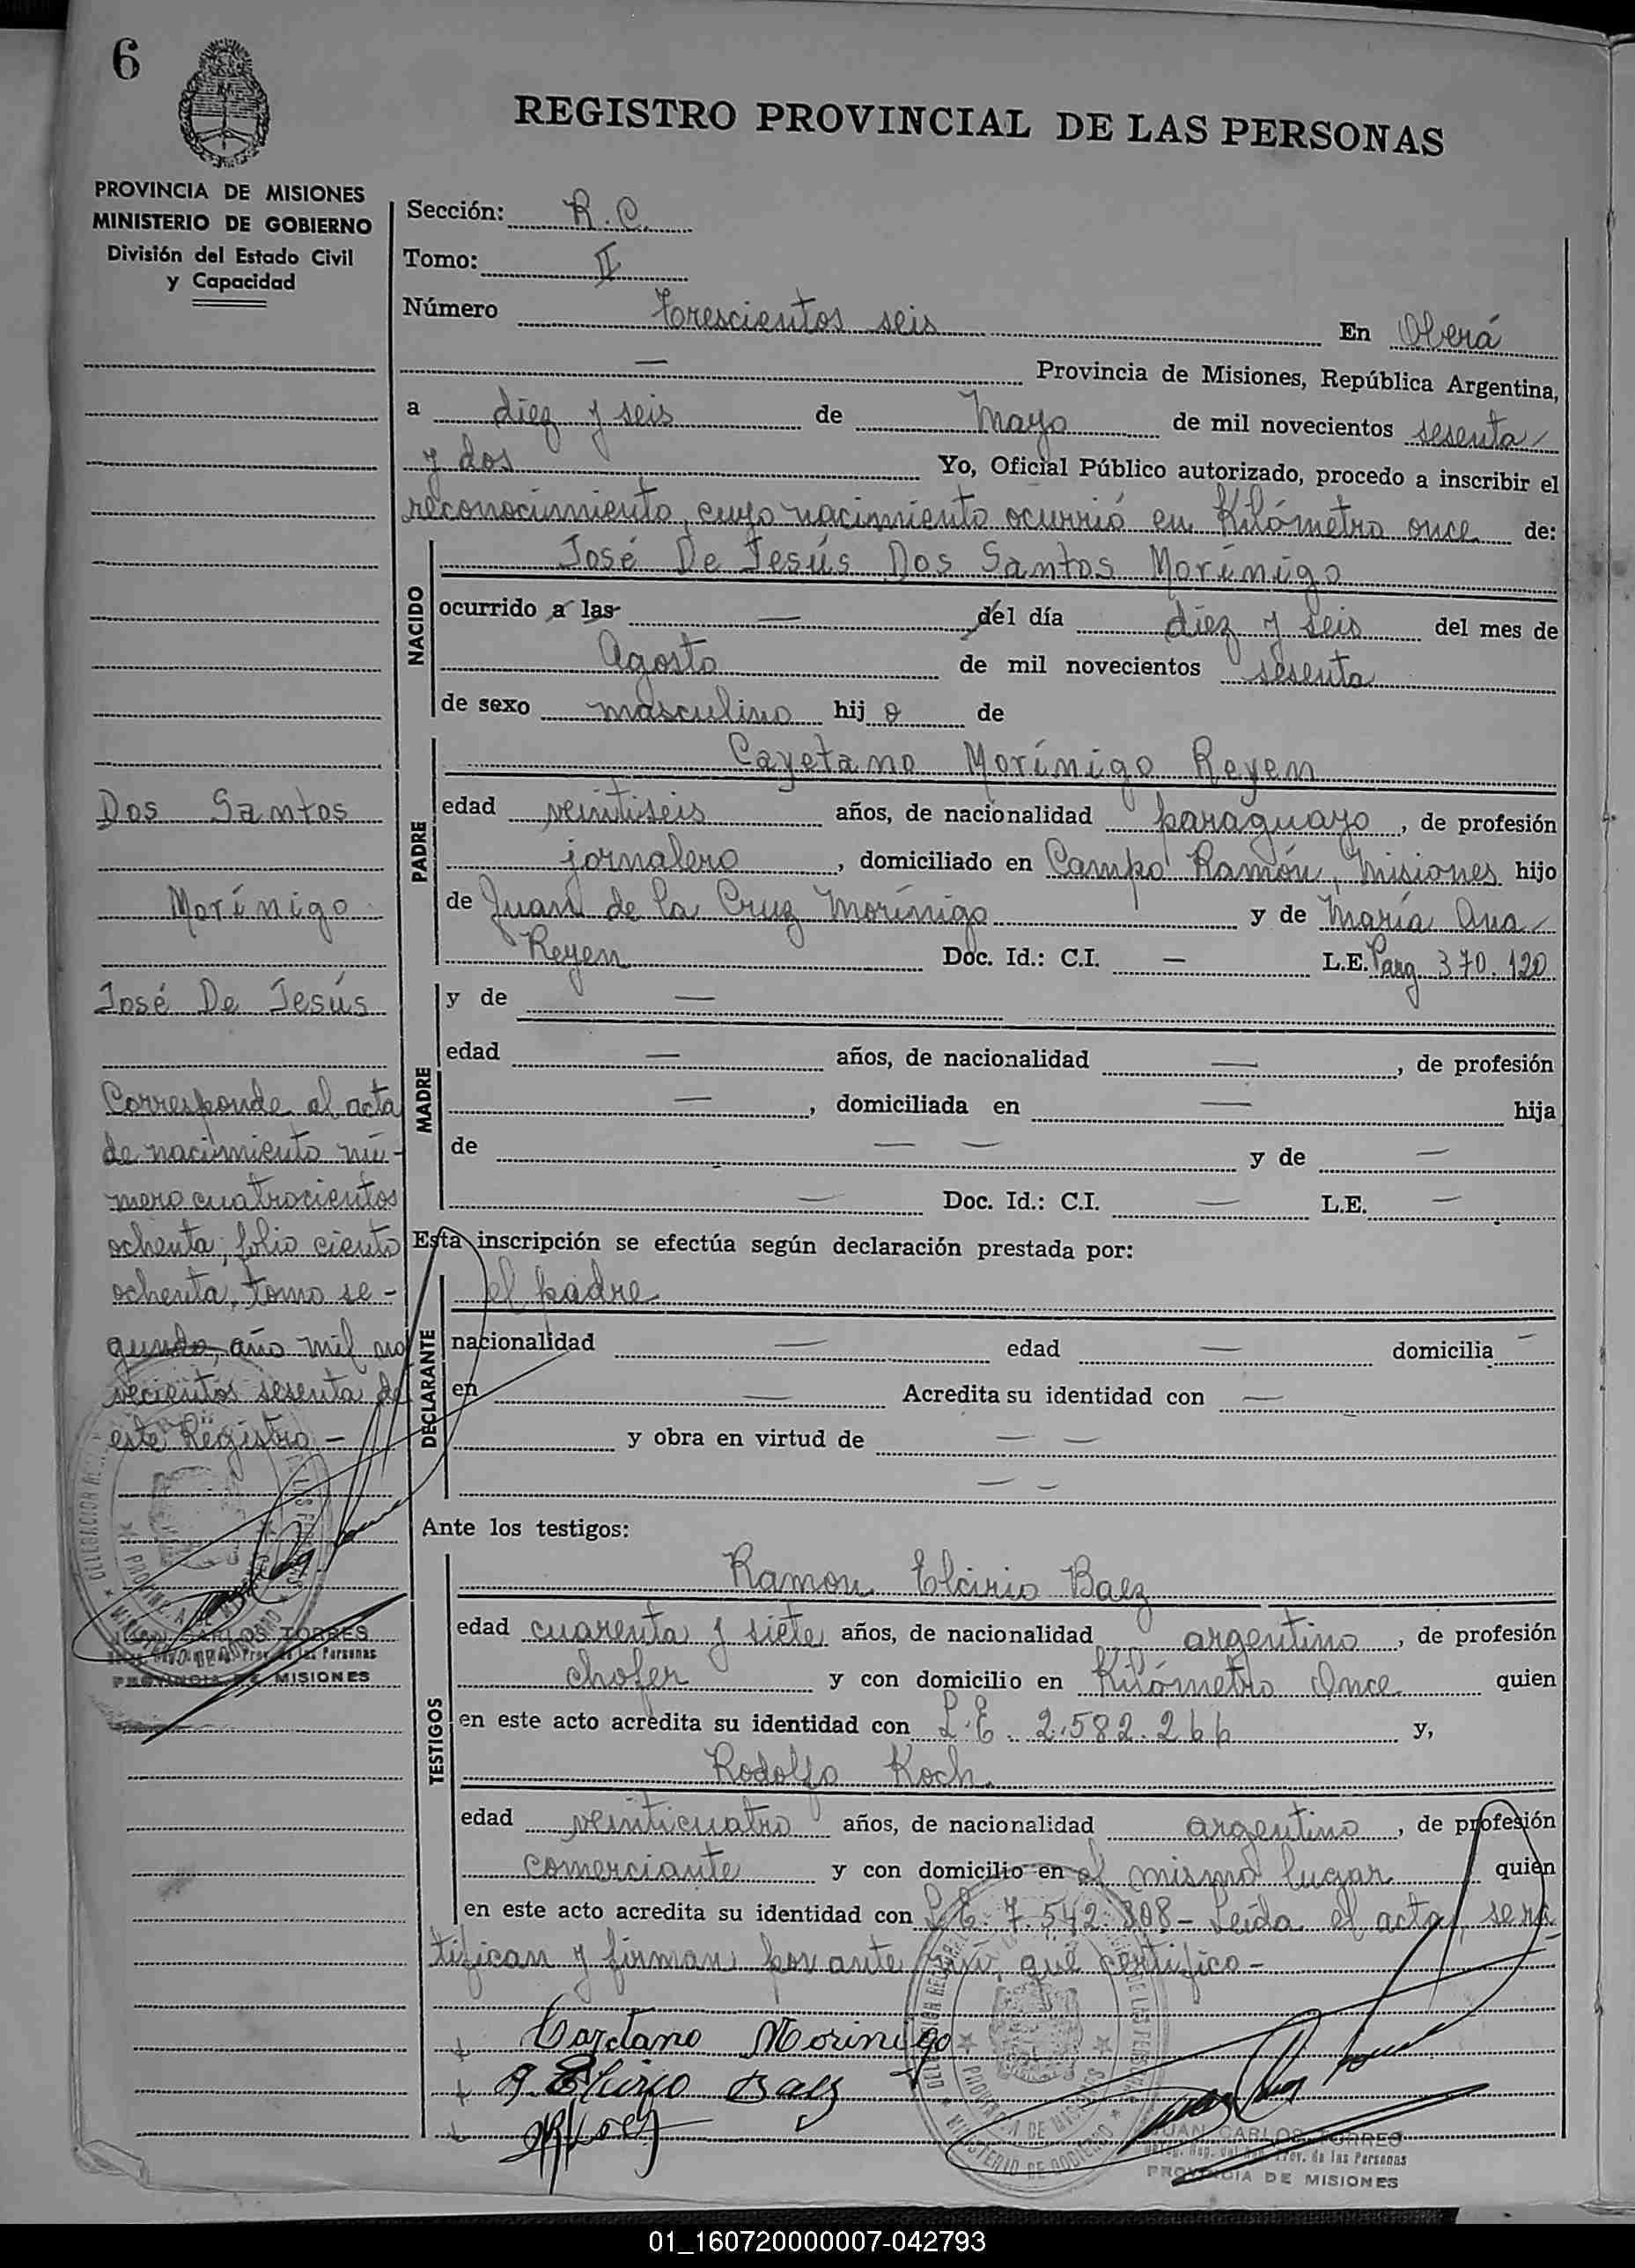 6
REGISTRO PROVINCIAL DE LAS PERSONAS
PROVINCIA DE MISIONES
MINISTERIO DE GOBIERNO
División del Estado Civil
y Capacidad
Sección: R.C.
Tomo: II
Número trescientos seis En Oberá
— Provincia de Misiones, República Argentina,
a diez y seis de Mayo de mil novecientos sesenta
y dos Yo, Oficial Público autorizado, procedo a inscribir el
reconocimiento, cuyo nacimiento ocurrió en Kilómetro once de:
NACIDO
José De Jesús Dos Santos Morínigo
ocurrido a las — del día diez y seis del mes de
Agosto de mil novecientos sesenta
de sexo masculino hijo de
PADRE
Cayetano Morínigo Reyem
edad veintiseis años, de nacionalidad paraguayo, de profesión
jornalero, domiciliado en Campo Ramón, Misiones hijo
de Juan de la Cruz Morínigo y de María Ana
Reyem Doc. Id.: C.I. — L.E. Parg 370.120
MADRE
y de —
edad — años, de nacionalidad —, de profesión
—, domiciliada en — hija
de — — y de —
— Doc. Id.: C.I. — L.E. —
Esta inscripción se efectúa según declaración prestada por:
DECLARANTE
el padre
nacionalidad — edad — domicilia —
en — Acredita su identidad con —
y obra en virtud de — —
— —
Ante los testigos:
TESTIGOS
Ramon Elcirio Baez
edad cuarenta y siete años, de nacionalidad argentino, de profesión
chofer y con domicilio en Kilómetro Once quien
en este acto acredita su identidad con L.E. 2.582.266 y,
Rodolfo Koch
edad veinticuatro años, de nacionalidad argentino, de profesión
comerciante y con domicilio en el mismo lugar quien
en este acto acredita su identidad con L.E. 7.542.808- Leída el acta, se ra
tifican y firman por ante mí, que certifico-
Cayetano Morinigo
Baez
JUAN CARLOS TORRES
Prov. de las Personas
PROVINCIA DE MISIONES
Dos Santos
Morínigo
José De Jesús
Corresponde al acta
de nacimiento nú-
mero cuatrocientos
ochenta, folio ciento
ochenta, tomo se-
gundo, año mil no
vecientos sesenta de
este Registro-
JUAN CARLOS TORRES
Prov. de las Personas
PROVINCIA DE MISIONES
01_160720000007-042793